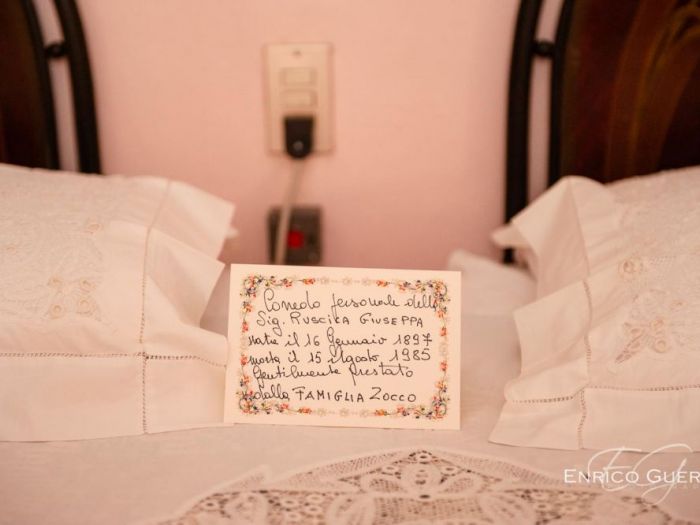 Corredo personale della
Sig. RUSCICA GIUSEPPA
nata il 16 Gennaio 1897
morta il 15 Agosto 1985
Gentilmente prestato
dalla FAMIGLIA ZOCCO
ENRICO GUER